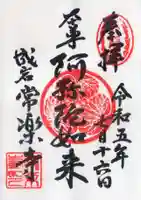 奉拝
令和五年
六月十六日
本尊
阿弥陀如来
成岩
常楽寺